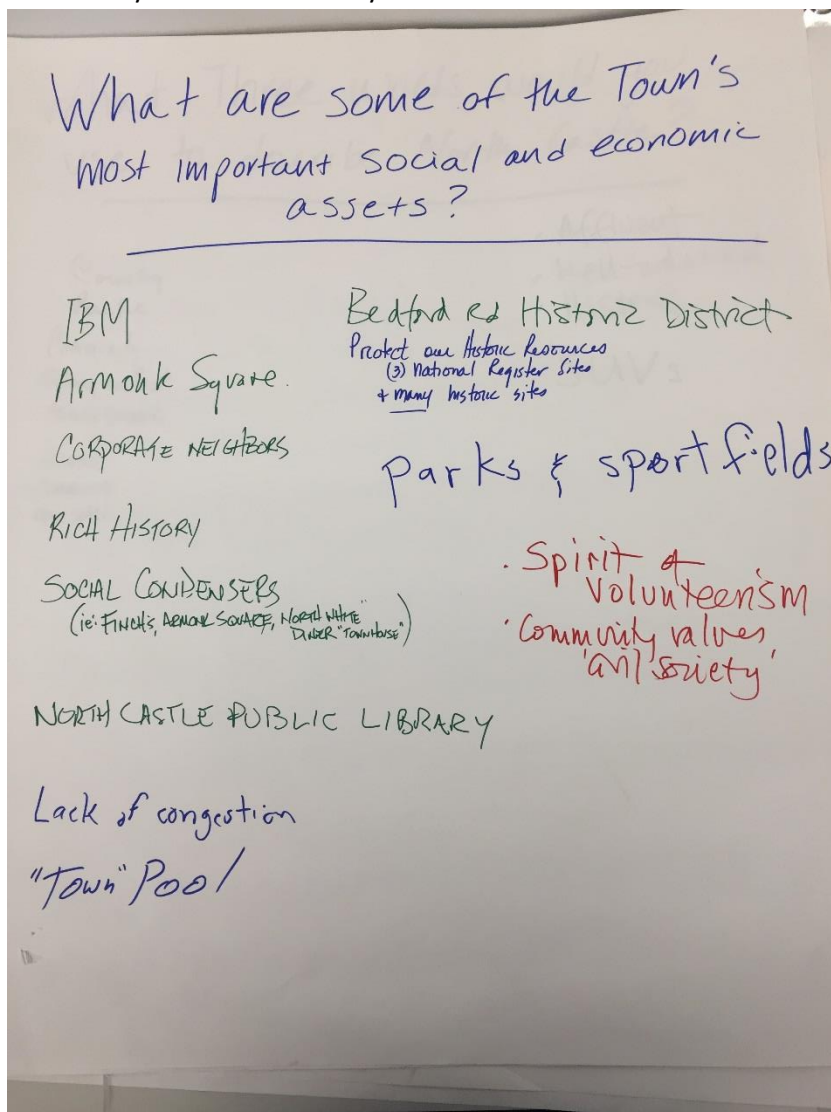 What are some of the Town's
most important social and economic
assets?
IBM
Armonk Square.
CORPORATE NEIGHBORS
RICH HISTORY
SOCIAL CONDENSERS
(ie: FINCH'S, ARMONK SQUARE, NORTH WHITE
DINER "TOWNHOUSE")
NORTH CASTLE PUBLIC LIBRARY
Lack of congestion
"Town" Pool
Bedford Rd Historic District
Protect our Historic Resources
(3) National Register Sites
+ many historic sites
parks & sport fields
· Spirit of
Volunteerism
· Community values,
'civil society'